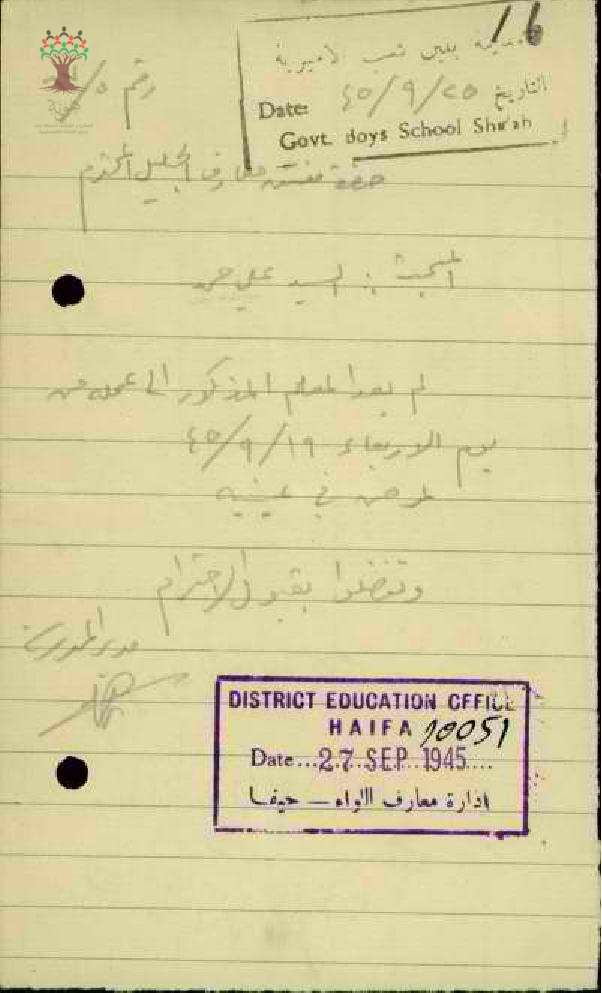 16
مدرسة بنين شعب الاميرية
التاريخ ٤٥/٩/٢٥
Date:
Govt. boys School Sha'ab
رقم ٥/
هوية
حضرة مفتش معارف الجليل المحترم
المبحث : السيد علي
لم يعد المعلم المذكور الى عمله من
يوم الاربعاء ٤٥/٩/١٩
لمرض في عينيه
وتفضلوا بقبول الاحترام
مدير المدرسة
DISTRICT EDUCATION OFFICE
HAIFA 10051
Date...27.SEP.1945....
ادارة معارف اللواء – حيفا